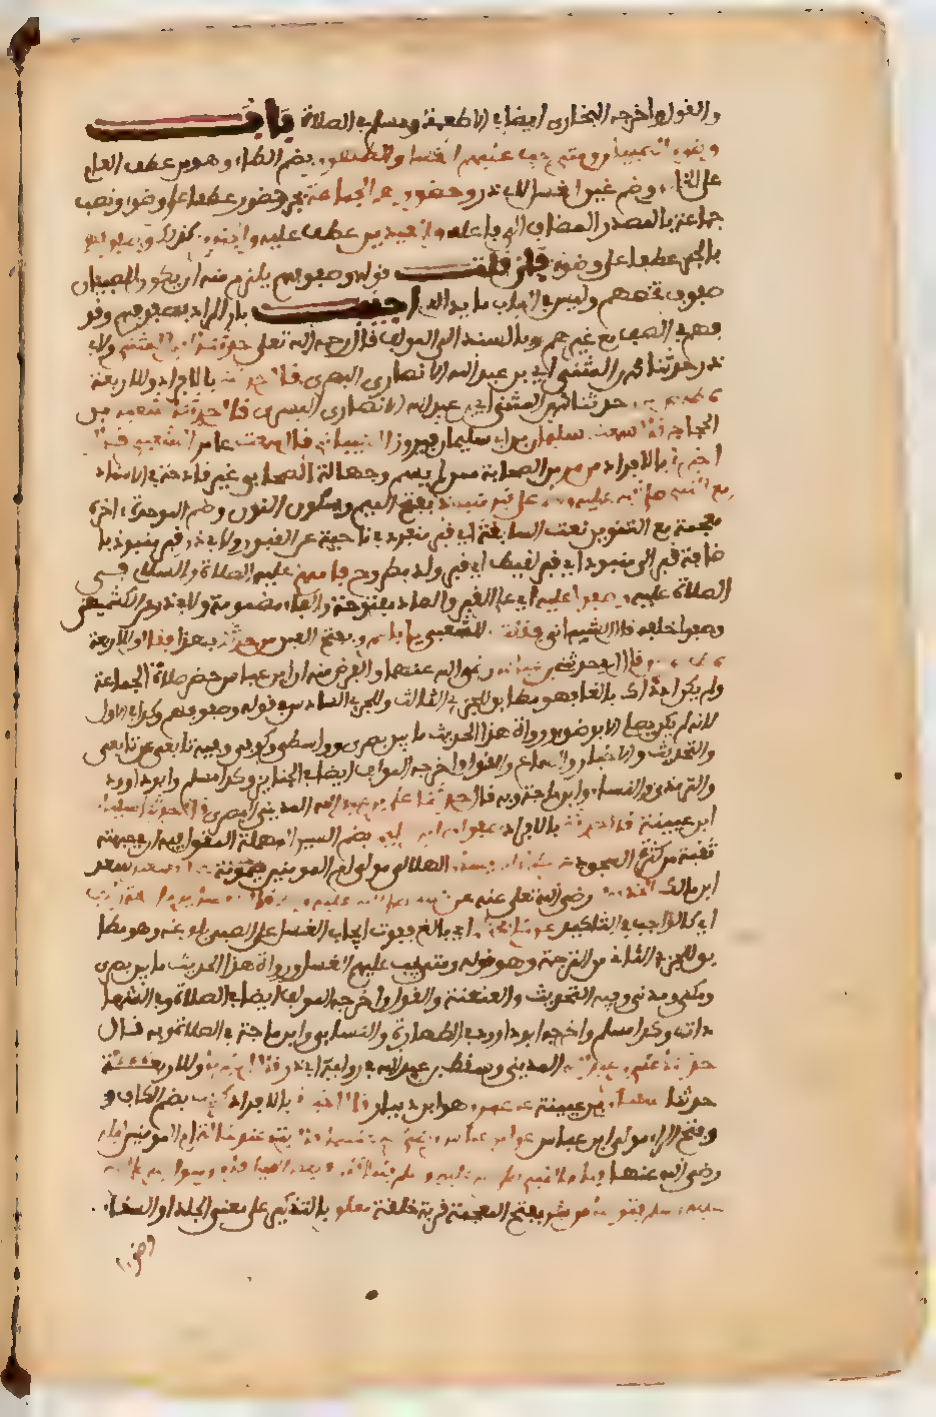 والقول واخرجه البخاري ايضا في الاطعمة ومسلم في الصلاة باب
وضوء الصبيان ومتى يجب عليهم الغسل والطهور بضم الطاء وهو من عطف العام
على الخاص وضم غين الغسل لابي ذر وحضورهم الجماعة بجر حضور عطفا على وضوء ونصب
جماعة بالمصدر المضاف الى فاعله والعيدين عطف عليه والجنائز كذلك وصفوفهم
بالجر عطفا على وضوء فان قلت قوله وصفوفهم يلزم منه ان يكون للصبيان
صفوف تخصهم وليس في الباب ما يدل له اجيب بان المراد بصفوفهم وقو
فهم في الصف مع غيرهم وبالسند الى المولف قال رحمه الله تعالى حدثنا ابن المثنى ولابي
ذر حدثنا محمد بن المثنى اي بن عبد الله الانصاري البصري قال حدثني بالافراد وللاربعة
حدثنا محمد بن المثنى اي عبد الله الانصاري البصري قال حدثنا شعبة بن
الحجاج قال سمعت سليمان بن ابي سليمان فيروز الشيباني قال سمعت عامر الشعبي قال
اخبرني بالافراد من مر من الصحابة ممن لم يسم وجهالة الصحابي غير قادحة في الاسناد
مع النبي صلى الله عليه وسلم على قبر منبوذ بفتح الميم وسكون النون وضم الموحدة اخره
معجمة مع التنوين نعت لسابقه اي قبر منفرد في ناحية عن القبور ولابي ذر قبر منبوذ با
ضافة قبر الى منبوذ اي قبر لقيط اي قبر ولد مطروح فامهم عليه الصلاة والسلام في
الصلاة عليه وصفوا عليه اي على القبر والصاد مفتوحة والفاء مضمومة ولابي ذر عن الكشميهني
وصفوا خلفه قال الشيباني فقلت للشعبي يا ابا عمرو بفتح العين من حدثك بهذا فقال وللاربعة
قال ابي حدثني ابن عباس رضي الله عنهما والغرض منه ان ابن عباس حضر صلاة الجماعة
ولم يكن اذ ذاك بالغا فهو مطابق للجزء الثالث وللجزء السادس في قوله وصفوفهم وكذا في الاول
لانه لم يكن يصلي الا بوضوء ورواة هذا الحديث ما بين بصري وواسطي وكوفي وفيه تابعي عن تابعي
والتحديث والاخبار والسماع والقول واخرجه المولف ايضا في الجنائز وكذا مسلم وابو داوود
والترمذي والنسائي وابن ماجة وبه قال حدثنا علي بن عبد الله المديني البصري قال حدثنا سفيان
ابن عيينة قال حدثني بالافراد صفوان بن سليم بضم السين المهملة المقول فيه ان جبهته
ثقبت من كثرة السجود عن عطاء بن يسار الهلالي مولى ام المومنين ميمونة عن ابي سعيد سعد
ابن مالك الخدري رضي الله تعالى عنه عن النبي صلى الله عليه وسلم قال الغسل يوم الجمعة واجب
اي كالواجب في التاكيد على كل محتلم اي بالغ فوقت ايجاب الغسل على الصبي بلوغه وهو مطا
بق للجزء الثاني من الترجمة وهو قوله ومتى يجب عليهم الغسل ورواة هذا الحديث ما بين بصري
ومكي ومدني وفيه التحديث والعنعنة والقول واخرجه المولف ايضا في الصلاة وفي الشها
دات وكذا مسلم واخرجه ابو داوود في الطهارة والنسائي وابن ماجة في الصلاة وبه قال
حدثنا علي بن عبد الله المديني وسقط بن عبد الله في رواية ابي ذر قال اخبرنا وللاربعة
حدثنا سفيان بن عيينة عن عمرو هو ابن دينار قال اخبرني بالافراد كريب بضم الكاف و
وفتح الراء مولى ابن عباس عن ابن عباس رضي الله عنهما قال بت عند خالتي ام المومنين ميمونة
رضي الله عنها ليلة فنام النبي صلى الله عليه وسلم فلما كان في بعض الليل قام رسول الله صلى الله
عليه وسلم فتوضا من شن بفتح المعجمة قربة خلقة معلق بالتذكير على معنى الجلد او السقاء